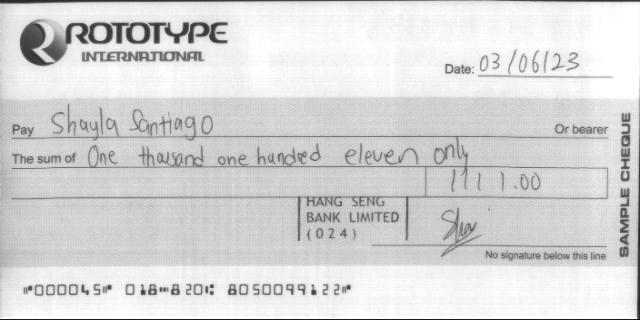 ROTOTYPE
INTERNATIONAL
Date: 03/06/23
Pay Shayla Santiago Or bearer
The sum of One thousand one hundred eleven only
1111.00
HANG SENG
BANK LIMITED
(024)
No signature below this line
SAMPLE CHEQUE
⑈000045⑈ 018⑉820⑆ 8050099122⑈